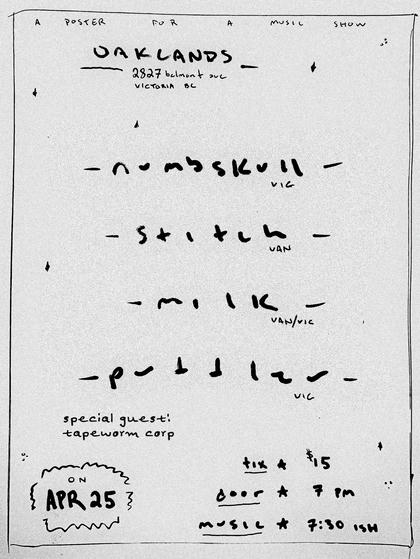 A POSTER FOR A MUSIC SHOW
OAKLANDS
2827 belmont ave
VICTORIA BC
numbskull
VIC
stitch
VAN
milk
VAN/VIC
puddler
VIC
special guest:
tapeworm corp
ON
APR 25
tix ★ $15
door ★ 7 PM
music ★ 7:30 ISH